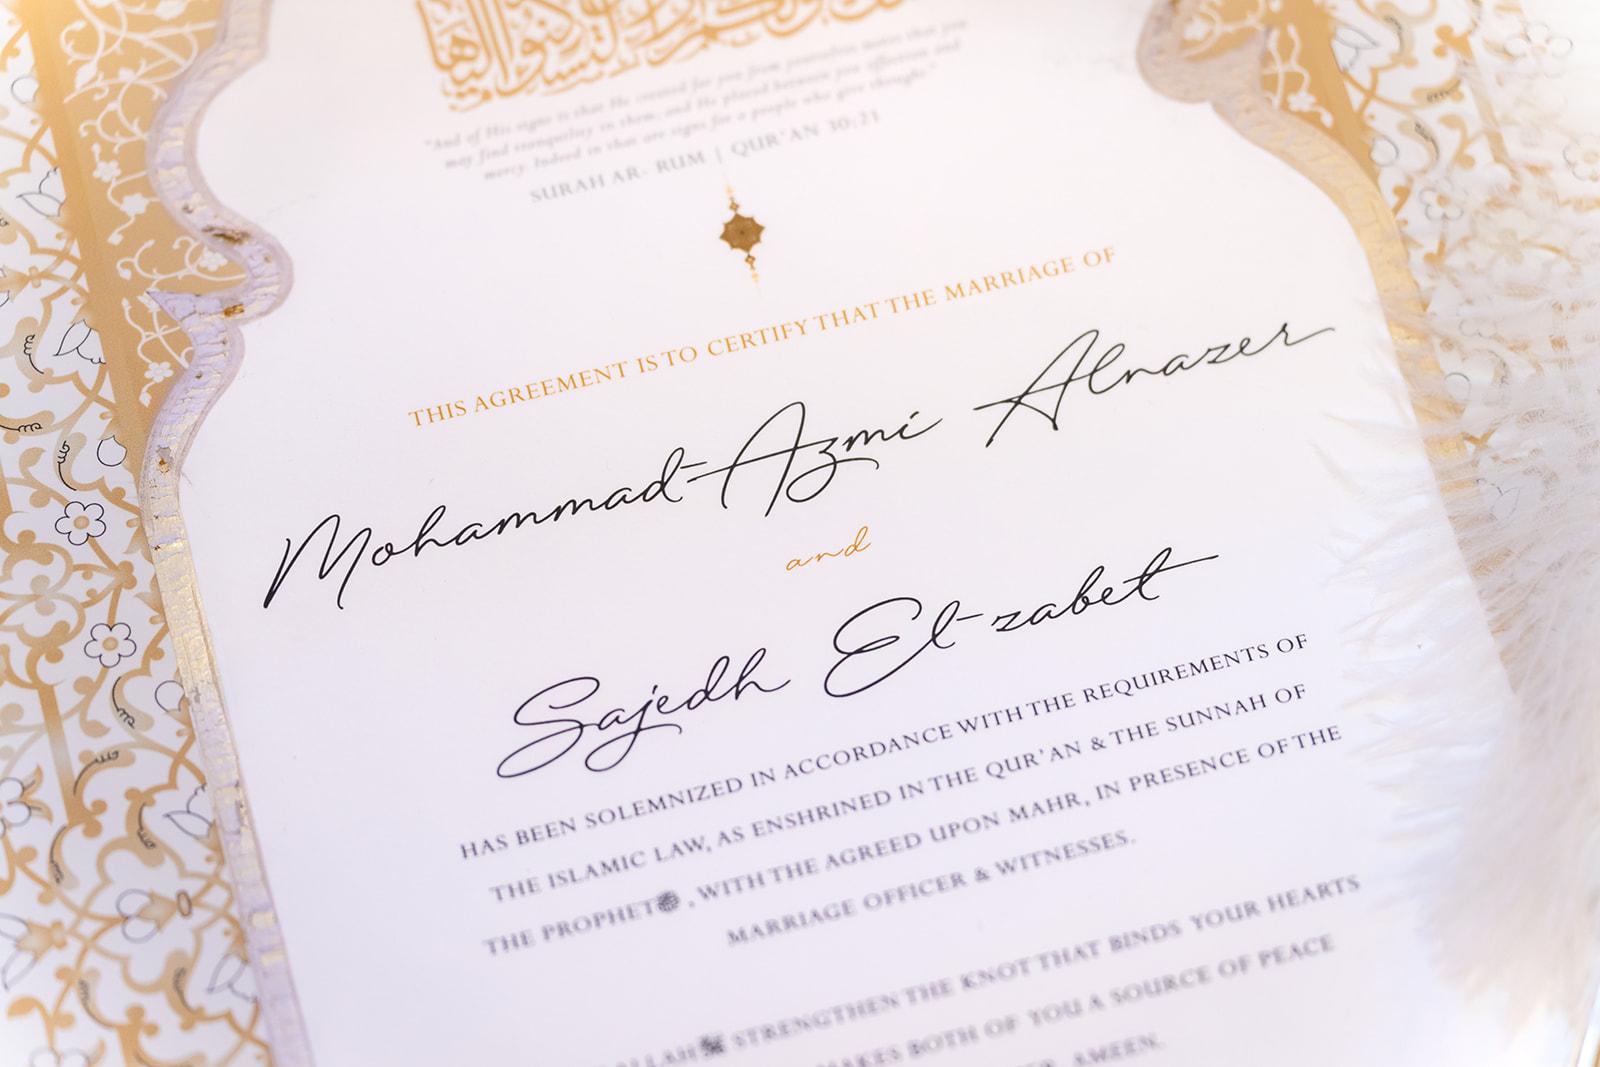 لتسكنوا إليها
"And of His signs is that He created for you from yourselves mates that you
may find tranquility in them; and He placed between you affection and
mercy. Indeed in that are signs for a people who give thought."
SURAH AR- RUM | QUR'AN 30:21
THIS AGREEMENT IS TO CERTIFY THAT THE MARRIAGE OF
Mohammad-Azmi Alnazer
and
Sajedh El-zabet
HAS BEEN SOLEMNIZED IN ACCORDANCE WITH THE REQUIREMENTS OF
THE ISLAMIC LAW, AS ENSHRINED IN THE QUR'AN & THE SUNNAH OF
THE PROPHET ﷺ, WITH THE AGREED UPON MAHR, IN PRESENCE OF THE
MARRIAGE OFFICER & WITNESSES.
ALLAH STRENGTHEN THE KNOT THAT BINDS YOUR HEARTS
MAKES BOTH OF YOU A SOURCE OF PEACE
AMEEN.